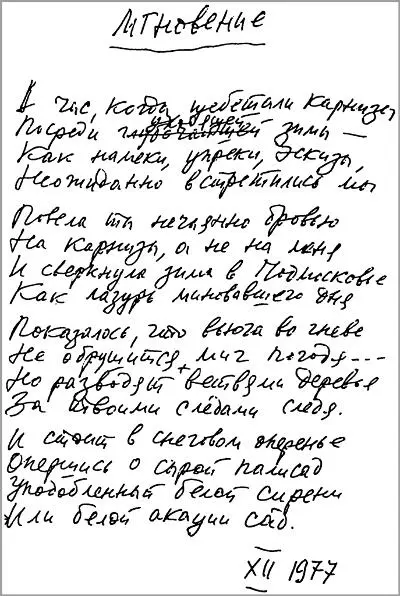 Мгновение
В час, когда щебетали карнизы
Посреди уходящей зимы —
Как намеки, упреки, эскизы,
Неожиданно встретились мы
Повела ты нечаянно бровью
На карнизы, а не на меня
И сверкнула зима в Подмосковье
Как лазурь миновавшего дня
Показалось, что вьюга во гневе
Не обрушится, миг погодя...
Но разводят ветвями деревья
За твоими следами следя.
И стоит в снеговом оперенье
Опершись о сырой палисад
Уподобленный белой сирени
Или белой акации сад.
XII 1977